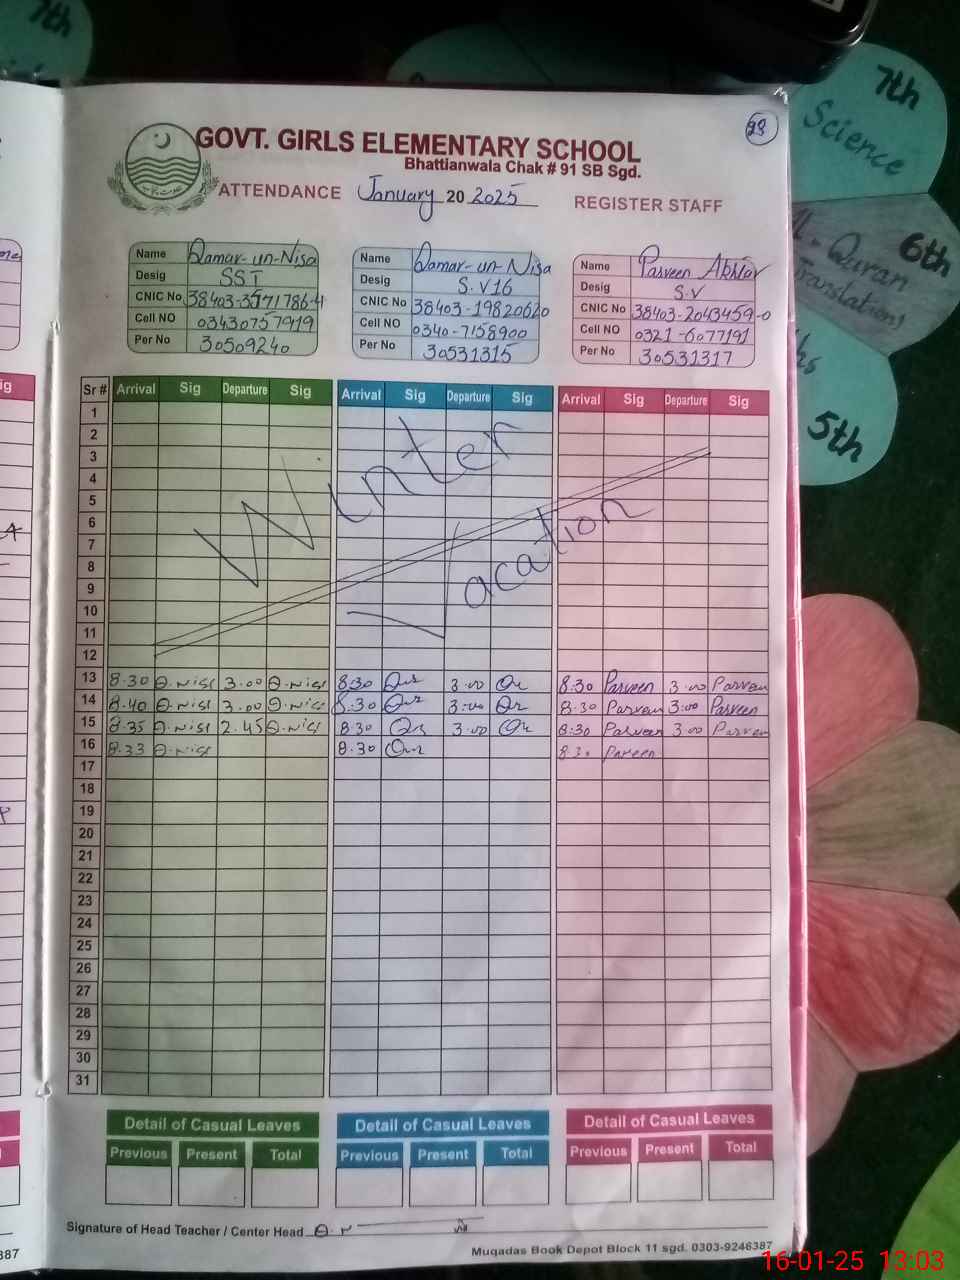 7th
7th
Science
98
GOVT. GIRLS ELEMENTARY SCHOOL
Bhattianwala Chak # 91 SB Sgd.
ATTENDANCE January 20 2025 REGISTER STAFF
6th
Quran
Translation
5th
Name Qamar-un-Nisa
Desig SST
CNIC No 38403-3571786-4
Cell NO 03430757919
Per No 30509240
Name Qamar-un-Nisa
Desig S.V16
CNIC No 38403-19820620
Cell NO 0340-7158900
Per No 30531315
Name Parveen Akhtar
Desig S.V
CNIC No 38403-2043459-0
Cell NO 0321-6077191
Per No 30531317
Sr # Arrival Sig Departure Sig Arrival Sig Departure Sig Arrival Sig Departure Sig
1
2
3
4
5
6
7
8
9
10
11
12
Winter
Vacation
13 8.30 Q.Nisa 3.00 Q.Nisa 8:30 3:00 8:30 Parveen 3:00 Parveen
14 8.40 Q.Nisa 3.00 Q.Nisa 8:30 3:00 8:30 Parveen 3:00 Parveen
15 8.35 Q.Nisa 2.45 Q.Nisa 8:30 3:00 8:30 Parveen 3:00 Parveen
16 8.33 Q.Nisa 8.30 8:30 Parveen
17
18
19
20
21
22
23
24
25
26
27
28
29
30
31
Detail of Casual Leaves Detail of Casual Leaves Detail of Casual Leaves
Previous Present Total Previous Present Total Previous Present Total
Signature of Head Teacher / Center Head
Muqadas Book Depot Block 11 sgd. 0303-9246387
16-01-25 13:03